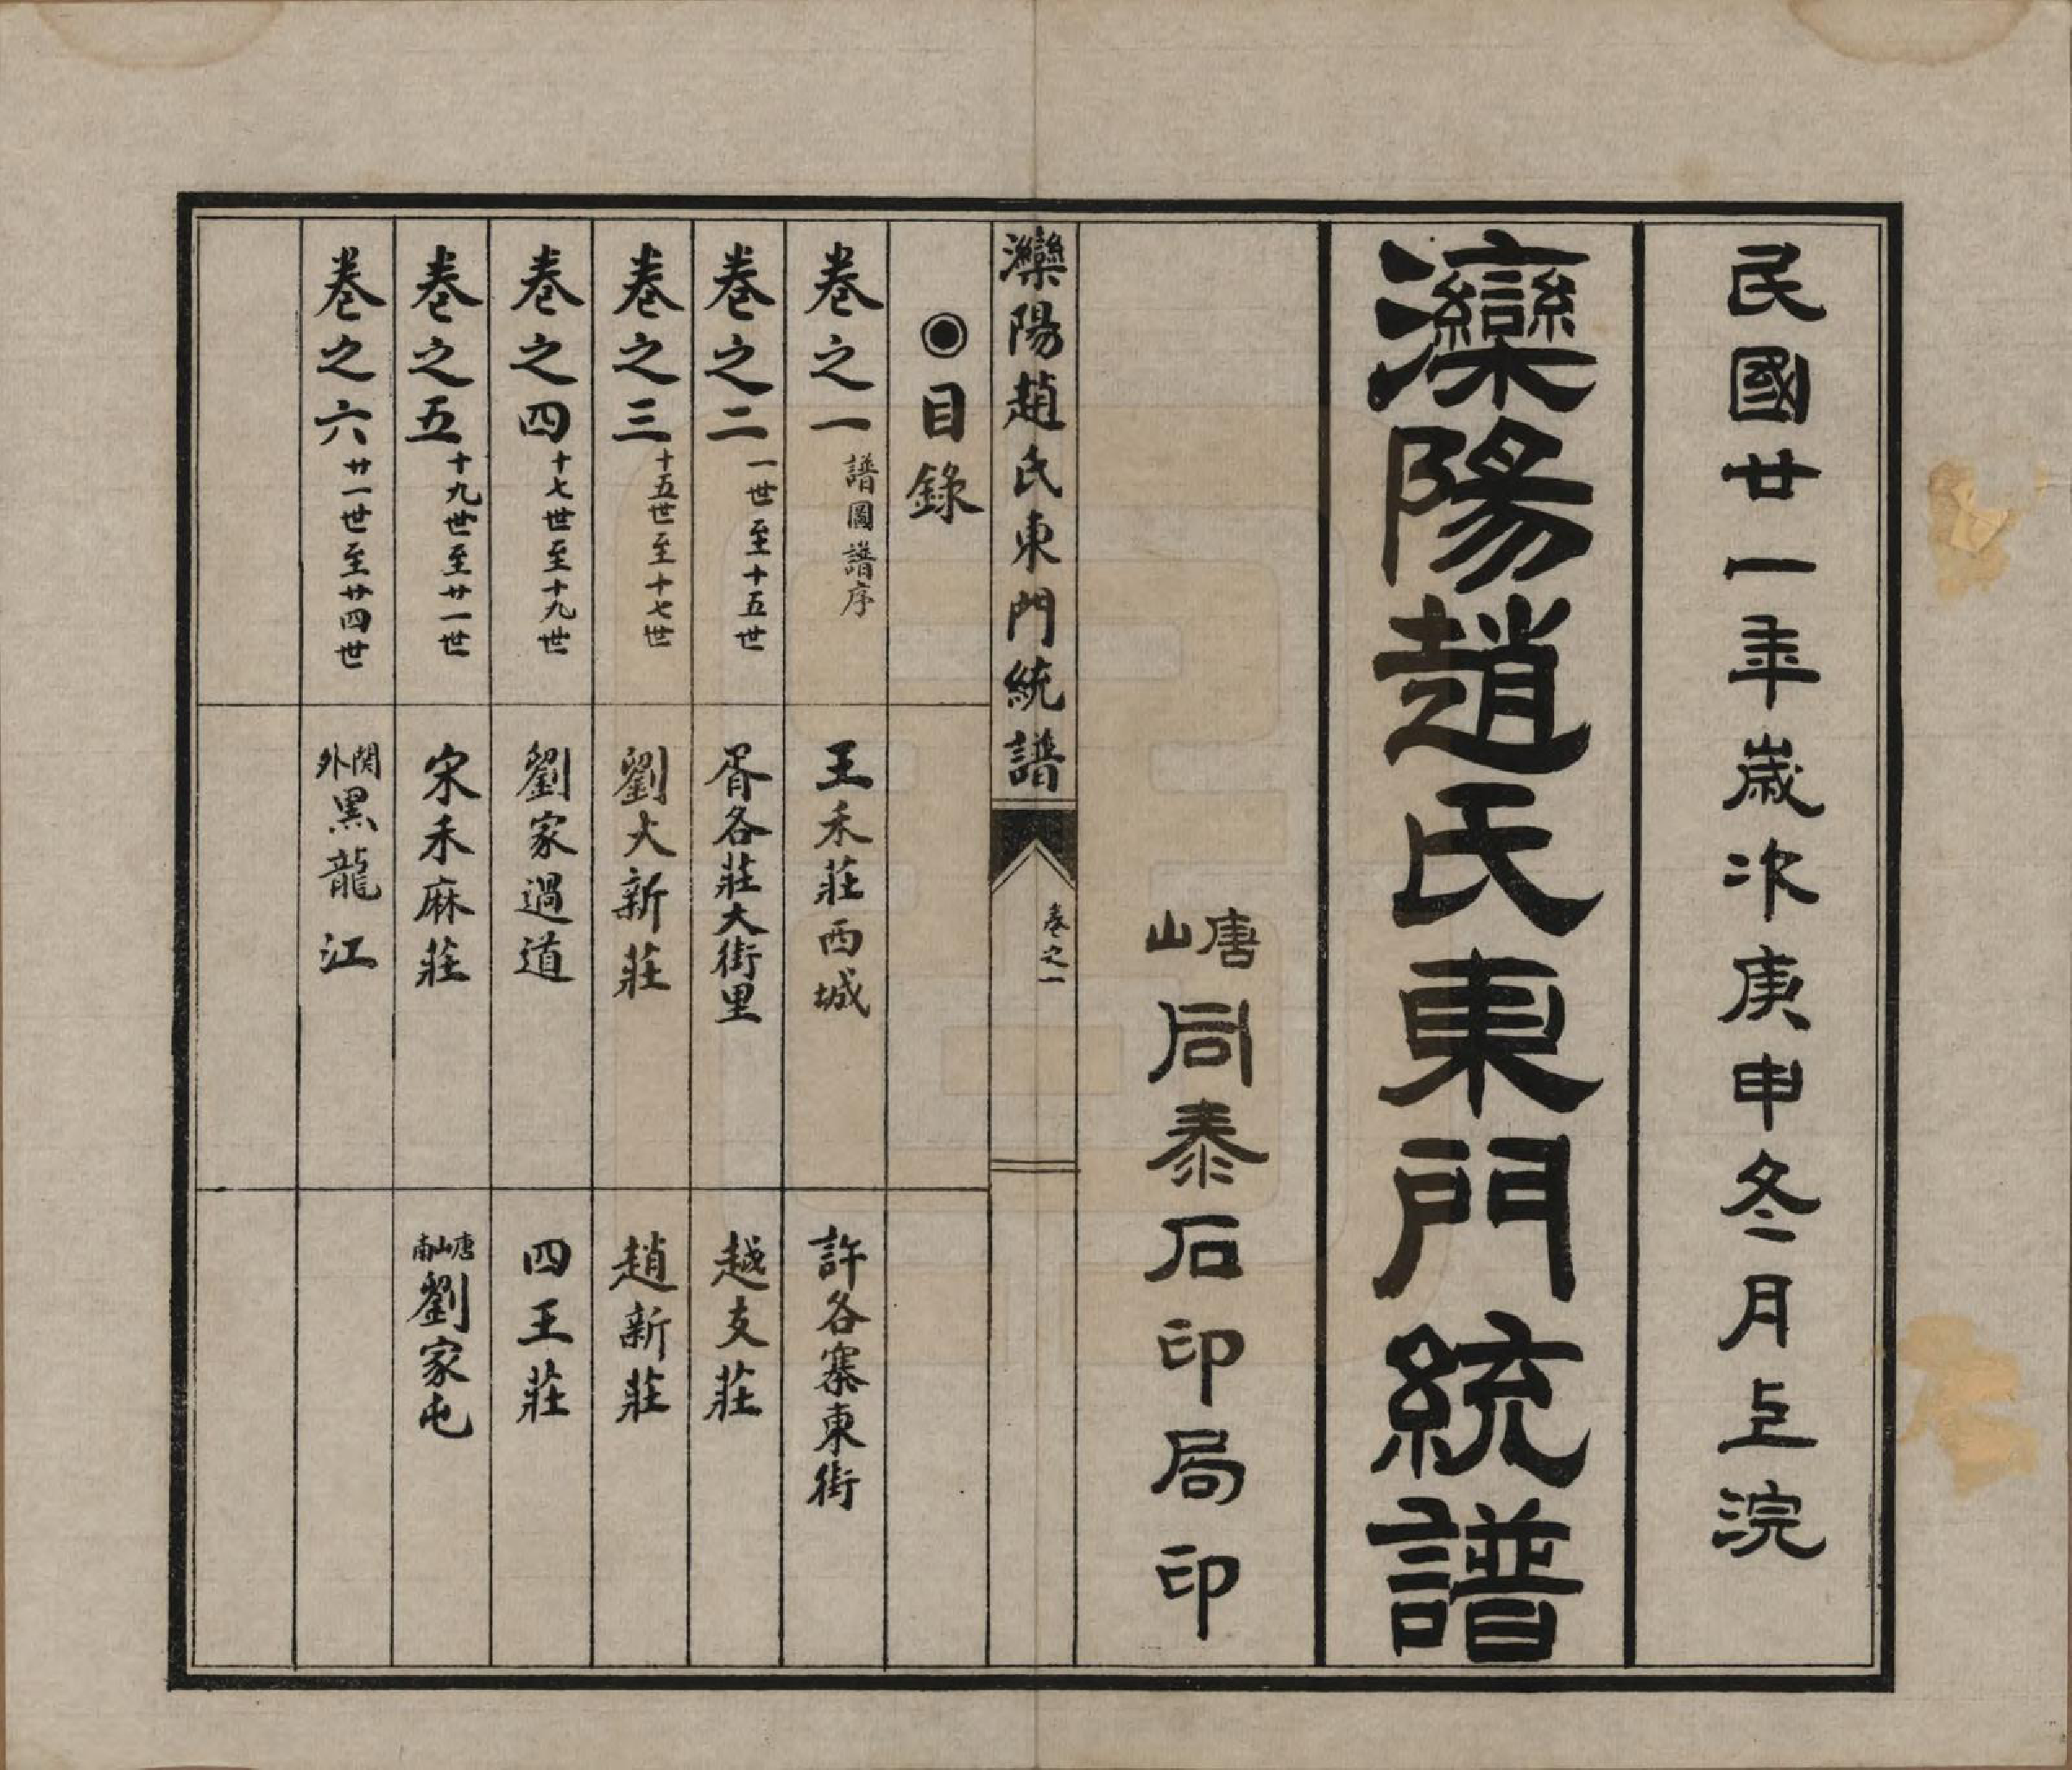 民國廿一年歲次庚申冬月上浣
灤陽趙氏東門統譜
唐山同泰石印局印
灤陽趙氏東門統譜
卷之一
◉目錄
卷之一 譜圖譜序 王禾莊西城 許各寨東街
卷之二 一世至十五世 胥各莊大街里 越支莊
卷之三 十五世至十七世 劉大新莊 趙新莊
卷之四 十七世至十九世 劉家過道 四王莊
卷之五 十九世至廿一世 宋禾麻莊 唐山南劉家屯
卷之六 廿一世至廿四世 関外黑龍江